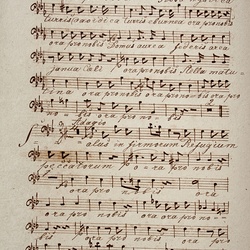 Turris Davidica Turris eburnea ora pro nobis
ora pro nobis Domus aurea foederis arca
janua Caeli ora pro nobis Stella matu-
tina ora pro nobis ora pro nobis ora pro
nobis
Adagio
Salus infirmorum Refugium
peccatorum ora pro nobis
ora pro nobis ora pro
nobis ora pro nobis
ora pro nobis ora pro nobis